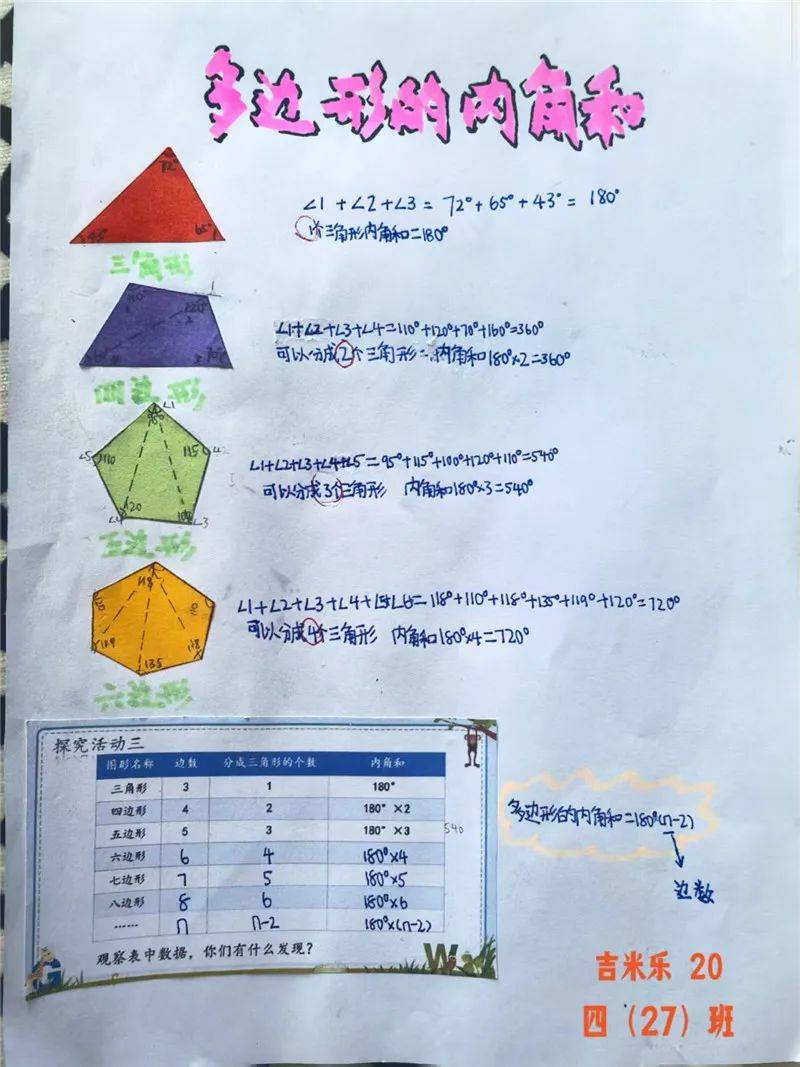 多边形的内角和
72°
43°
65°
∠1+∠2+∠3=72°+65°+43°=180°
1个三角形内角和=180°
三角形
120°
70°
∠1+∠2+∠3+∠4=110°+120°+70°+160°=360°
可以分成2个三角形 内角和180°×2=360°
四边形
∠1
∠5
110
115
120
∠3
∠1+∠2+∠3+∠4+∠5=95°+115°+100°+120°+110°=540°
可以分成3个三角形 内角和180°×3=540°
五边形
118
120
110
119
135
∠1+∠2+∠3+∠4+∠5+∠6=118°+110°+118°+135°+119°+120°=720°
可以分成4个三角形 内角和180°×4=720°
六边形
探究活动三
图形名称 边数 分成三角形的个数 内角和
三角形 3 1 180°
四边形 4 2 180°×2
五边形 5 3 180°×3 540
六边形 6 4 180°×4
七边形 7 5 180°×5
八边形 8 6 180°×6
…… n n-2 180°×(n-2)
观察表中数据，你们有什么发现？
多边形的内角和=180°(n-2)
边数
吉米乐 20
四（27）班